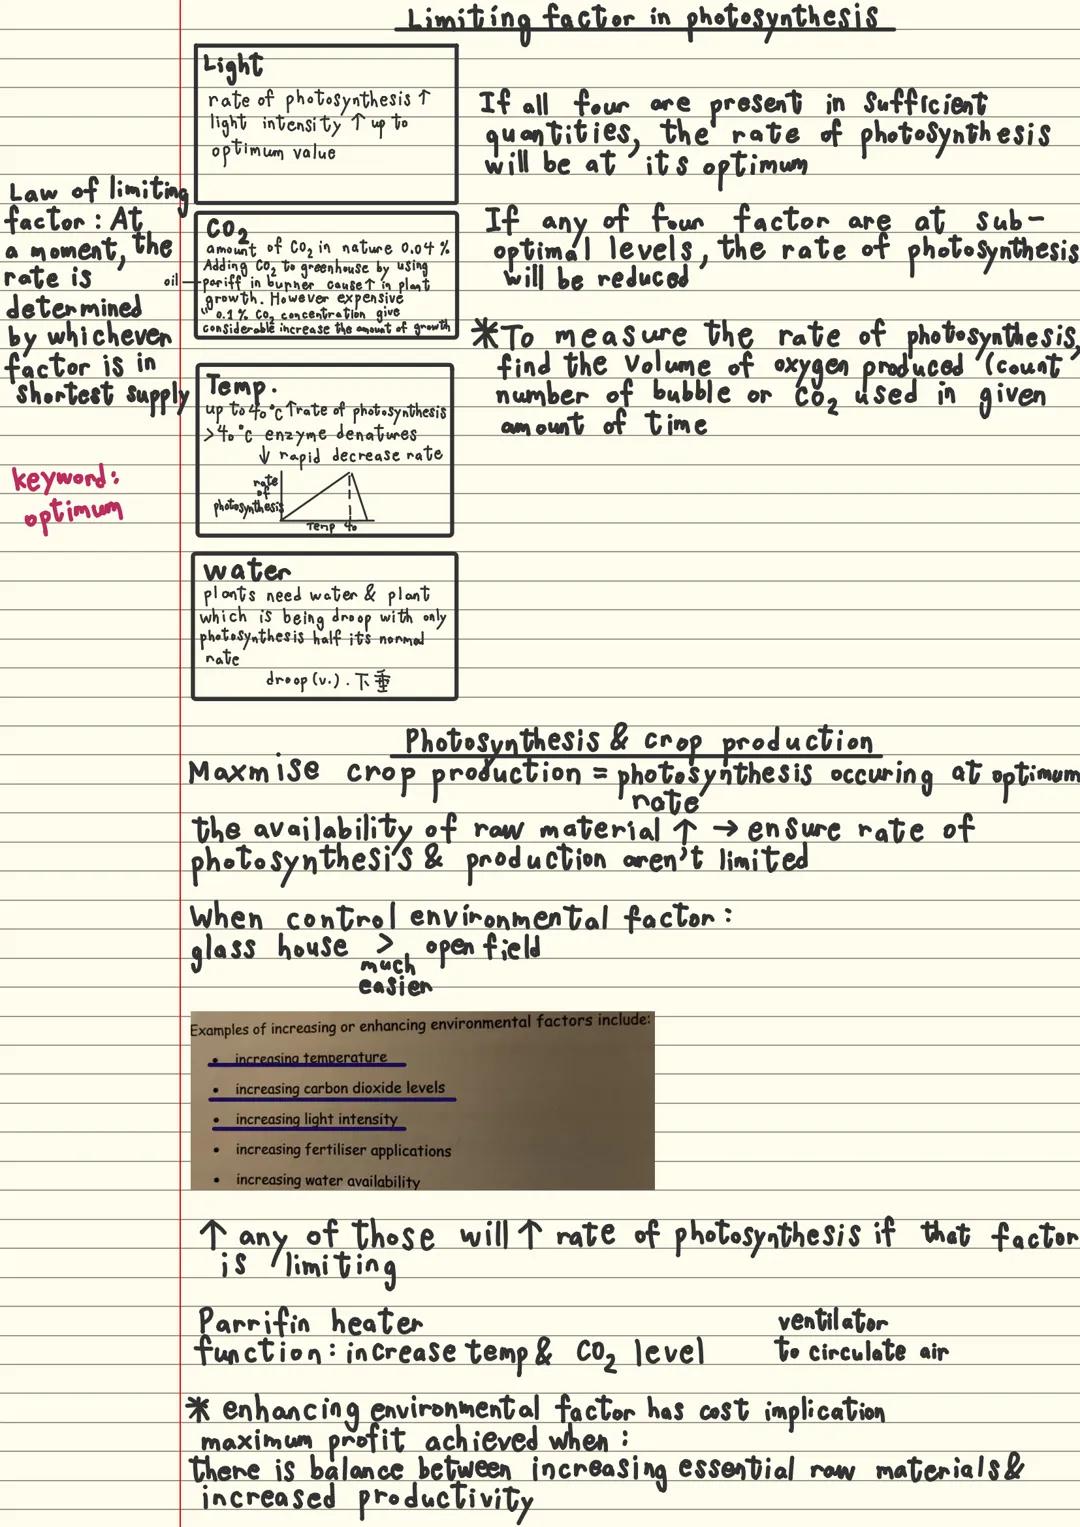 Limiting factor in photosynthesis
Light
rate of photosynthesis ↑
light intensity ↑ up to
optimum value
If all four are present in sufficient
quantities, the rate of photosynthesis
will be at its optimum
If any of four factor are at sub-
optimal levels, the rate of photosynthesis
will be reduced
*To measure the rate of photosynthesis,
find the volume of oxygen produced (count
number of bubble or CO₂ used in given
amount of time
Law of limiting
factor: At
a moment, the
rate is
determined
by whichever
factor is in
shortest supply
keyword:
optimum
CO₂
amount of CO₂ in nature 0.04%
Adding CO₂ to greenhouse by using
oil
pariff in burner cause ↑ in plant
growth. However expensive
" 0.1% CO₂ concentration give
considerable increase the amount of growth
Temp.
up to 40°C ↑ rate of photosynthesis
>40°C enzyme denatures
↓ rapid decrease rate
rate
of
photosynthesis
Temp 40
water
plants need water & plant
which is being droop with only
photosynthesis half its normal
rate
droop (v.). 下垂
Photosynthesis & crop production
Maxmise crop production = photosynthesis occuring at optimum
rate
the availability of raw material ↑ → ensure rate of
photosynthesis & production aren't limited
When control environmental factor:
glass house > open field
much
easier
Examples of increasing or enhancing environmental factors include:
• increasing temperature
• increasing carbon dioxide levels
• increasing light intensity
• increasing fertiliser applications
• increasing water availability
↑ any of those will ↑ rate of photosynthesis if that factor
is limiting
Parrifin heater
function: increase temp & CO₂ level
ventilator
to circulate air
* enhancing environmental factor has cost implication
maximum profit achieved when:
there is balance between increasing essential raw materials &
increased productivity